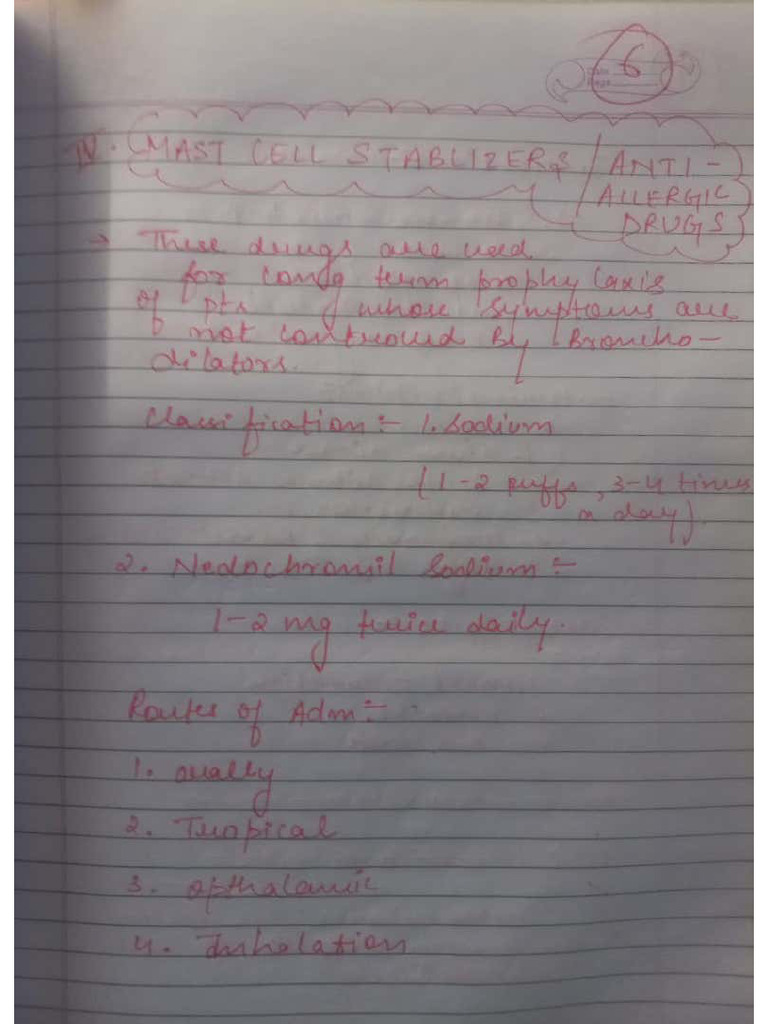 6
IV. MAST CELL STABLIZERS / ANTI-
ALLERGIC
DRUGS
→ These drugs are used
for long term prophylaxis
of pts whose symptoms are
not controued by Broncho-
dilators.
Classification :- 1. Sodium
(1-2 puffs, 3-4 times
a day).
2. Nedochromil Sodium :-
1-2 mg twice daily.
Routes of Adm :-
1. orally
2. Tropical
3. opthalamic
4. Inhalation